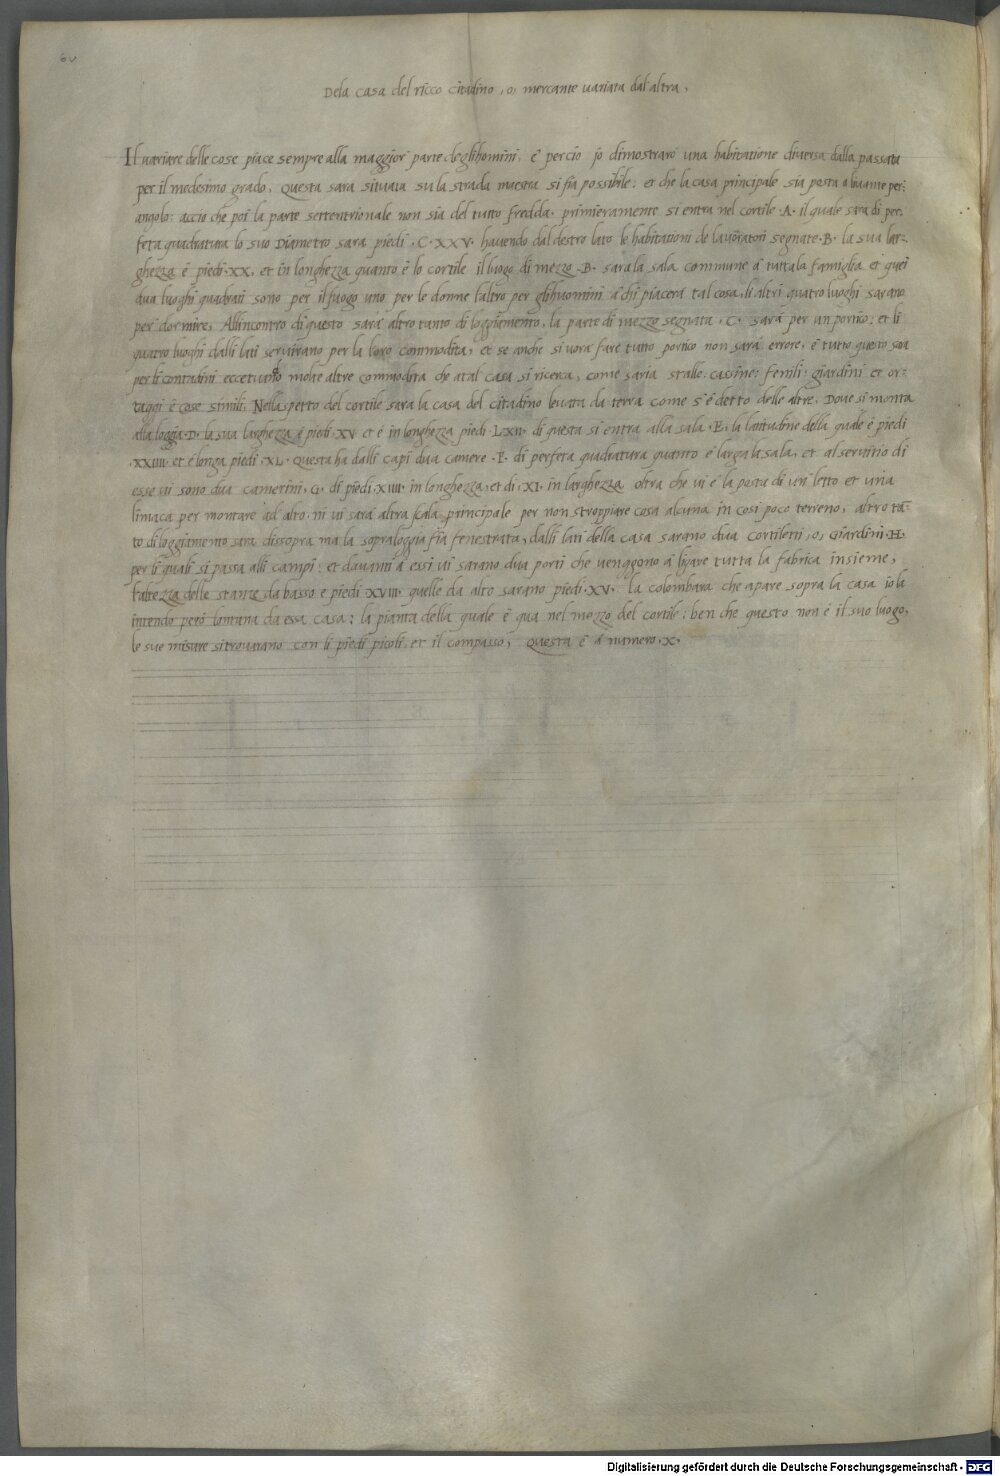 6v
Dela casa del ricco citadino ,o, mercante variata dal'altra,
Il variare delle cose piace sempre alla maggior parte deglihomini, è percio io dimostrarò una habitatione diversa dalla passata
per il medesimo grado, Questa sara situata su la strada maestra si fia possibile: et che la casa principale sia posta a livante per:
angolo: accio che poi la parte settentrionale non sia del tutto fredda. primieramente si entra nel cortile .A. il quale sara di per,
feta quadratura lo suo Diametro sara piedi .C.XXV. havendo dal destro lato le habitationi de lavoratori segnate .B. la sua lar:,
ghezza è piedi .XX, et in longhezza quanto è lo cortile il luogo di mezzo .B. sara la sala commune à tutta la famiglia et quei
dua luoghi quadrati sono per il fuogo uno, per le donne l'altro per glihuomini à chi piacerà tal cosa, li altri quatro luoghi sarano
per dormire, All'incontro di questo sarà altro tanto di loggiamento, la parte di mezzo segnata .C. sarà per un portico: et li
quatro luoghi dalli lati servirano per la loro commodita, et se anche si vorà fare tutto portico non sarà errore, è tutto questo sara
per li contadini eccetuando molte altre commodita che a tal casa si ricerca, come saria stalle. casine: fenili: giardini et or:
taggi è cose simili, Nell'aspetto del cortile sara la casa del citadino levata da terra come s'è detto delle altre, Dove si monta
alla loggia .D. la sua larghezza è piedi .XV et è in longhezza piedi .LXII. di questa si entra alla sala .E. la latitudine della quale è piedi
.XXIIII et è longa piedi .XL. Questa ha dalli capi dua camere .F. di perfeta quadratura quanto è larga la sala, et al servitio di
esse vi sono dua camerini, G. di piedi .XIIII in longhezza, et di .XI. in larghezza oltra che vi è la posta di un letto et una
limaca per montare ad alto. ni vi sara altra scala principale per non stroppiare cosa alcuna in cosi poco terreno, altro tā
to di loggiamento sara dissopra ma la sopraloggia fia fenestrata, dalli lati della casa sarano dua cortiletti ,o, Giardini .H.
per li quali si passa alli campi: et davanti à essi vi sarano dua porti che venggono à ligare tutta la fabrica insieme,
l'altezza delle stanze da basso è piedi .XVIII. quelle da alto sarano piedi .XV. la colombara che apare sopra la casa io la
intendo però lontana da essa casa: la pianta della quale è qua nel mezzo del cortile: ben che questo non è il suo luogo,
le sue misure si trovarano con li piedi picoli, et il compasso, Questa è à numero .X.
Digitalisierung gefördert durch die Deutsche Forschungsgemeinschaft - DFG